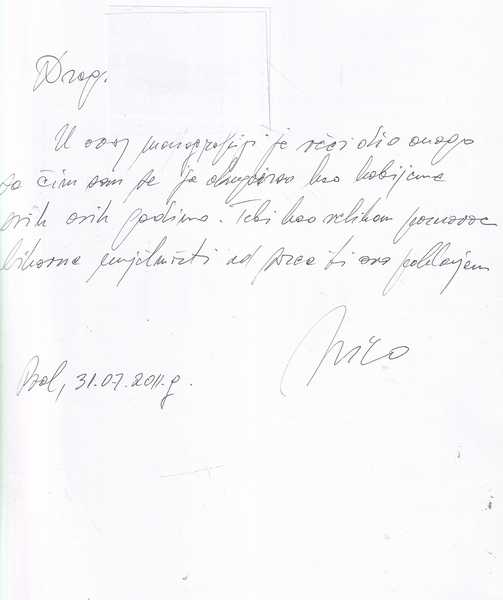 Drag.
U ovoj monografiji je veći dio onoga
sa čim sam se ja okupirao kao hobijema
svih ovih godina. Tebi kao velikom poznavaocu
likovne umjetnosti od srca ti ovo poklanjam
Bol, 31.07.2011.g.